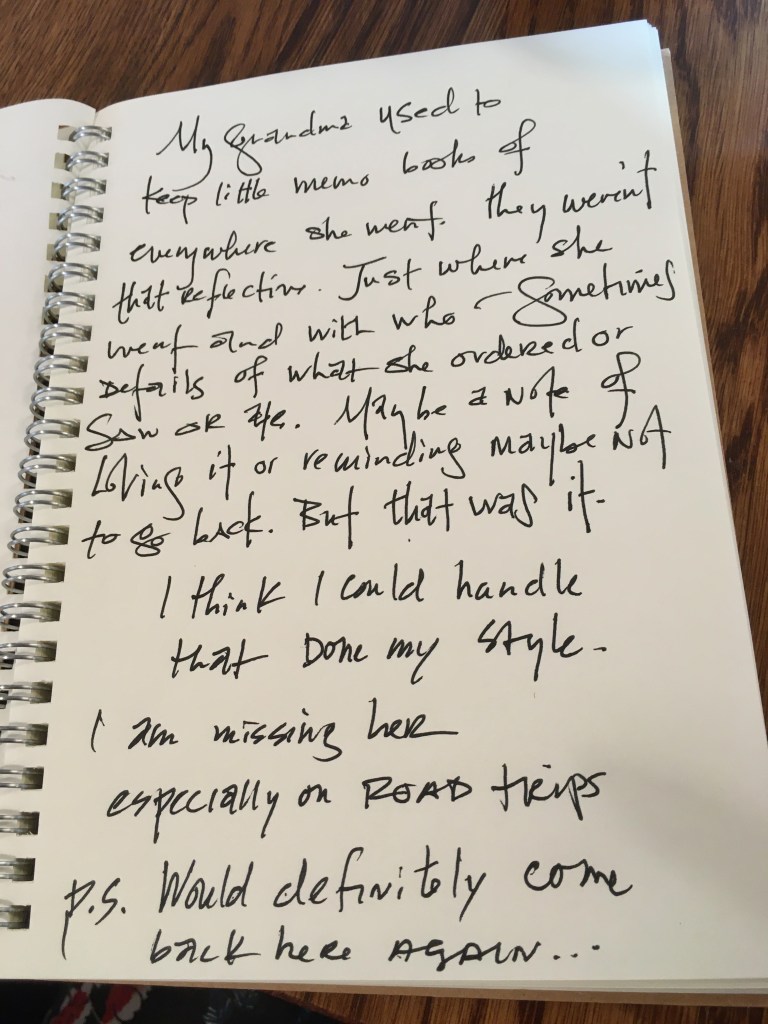 My grandma used to
keep little memo books of
everywhere she went. they weren't
that reflective. Just where she
went and with who – Sometimes
Details of what she ordered or
Saw or ate. Maybe a Note of
Loving it or reminding maybe Not
to go back. But that was it.
I think I could handle
that Done my style.
I am missing her
especially on ROAD trips
p.s. Would definitely come
back here AGAIN...